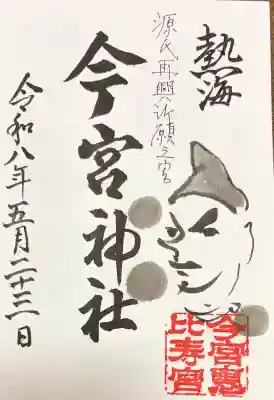 熱海
源氏再興祈願之宮
今宮神社
令和八年五月二十三日
今宮恵
比寿宮